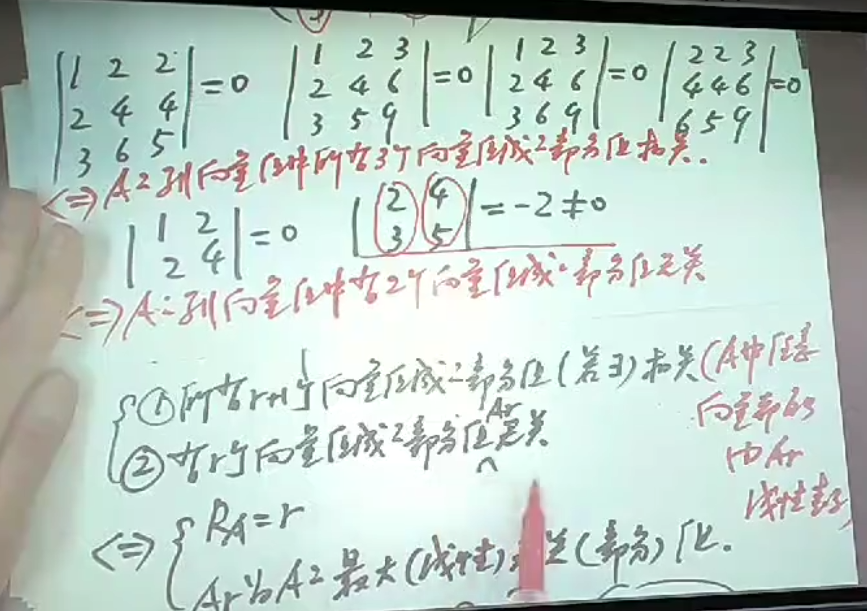 |1 2 2; 2 4 4; 3 6 5| = 0  |1 2 3; 2 4 6; 3 5 9| = 0  |1 2 3; 2 4 6; 3 6 9| = 0  |2 2 3; 4 4 6; 6 5 9| = 0
<=> A之列向量组中所有3个向量组成之部分组相关.
|1 2; 2 4| = 0  |2 4; 3 5| = -2 ≠ 0
<=> A之列向量组中有2个向量组成之部分组无关
① 所有r+1个向量组成之部分组(若∃)相关(A中任意
向量都能
由Ar
线性表示)
② 有r个向量组成之部分组Ar无关
<=> { RA = r
Ar为A之最大(线性)无关(部分)组.